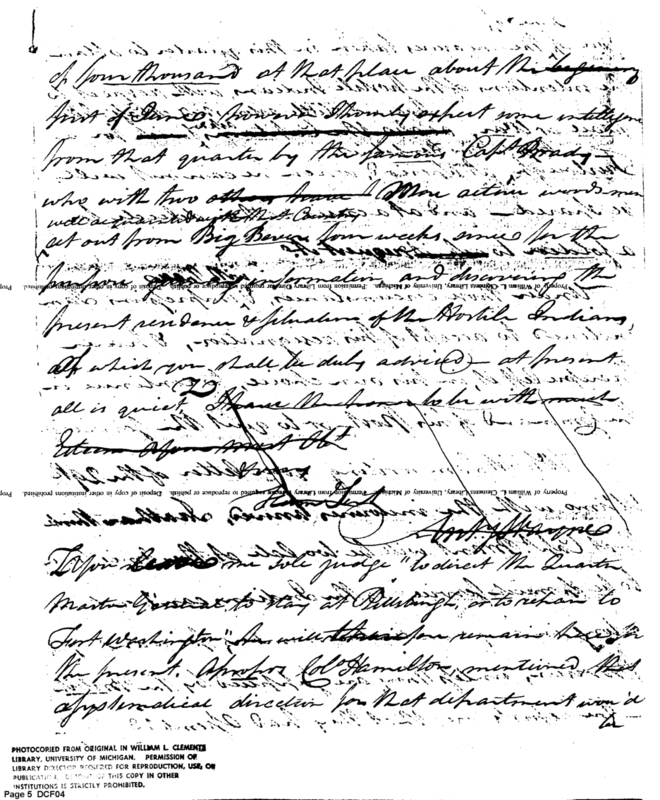 of four thousand at that place about the begining
first of June, however I hourly expect some intelligence
from that quarter by the famous Capt. Brady
who with two others have More active woodsmen
well acquainted with that Country
set out from Big Beaver four weeks since for the
purpose of information and discovering the
Property of William L. Clements Library, University of Michigan. Permission from Library Director required to reproduce or publish. Deposit of copy in other institutions prohibited.
present residence & situation of the Hostile Indians,
all which you shall be duly advised at present
all is quiet I have the honor to be with much
Esteem Your most Obt
Property of William L. Clements Library, University of Michigan. Permission from Library Director required to reproduce or publish. Deposit of copy in other institutions prohibited.
Hum Sert
Anty Wayne
you leave me sole judge "to direct the Quarter
Master General to stay at Pittsburgh, or to return to
Fort Washington", he will therefore remain here for
the present. Apropos, Colo. Hamilton, mentioned, that
a systematical direction for that department wou'd
be
PHOTOCOPIED FROM ORIGINAL IN WILLIAM L. CLEMENTS
LIBRARY, UNIVERSITY OF MICHIGAN. PERMISSION OF
LIBRARY DIRECTOR REQUIRED FOR REPRODUCTION, USE, OR
PUBLICATION. DEPOSIT OF THIS COPY IN OTHER
INSTITUTIONS IS STRICTLY PROHIBITED.
Page 5 DCF04